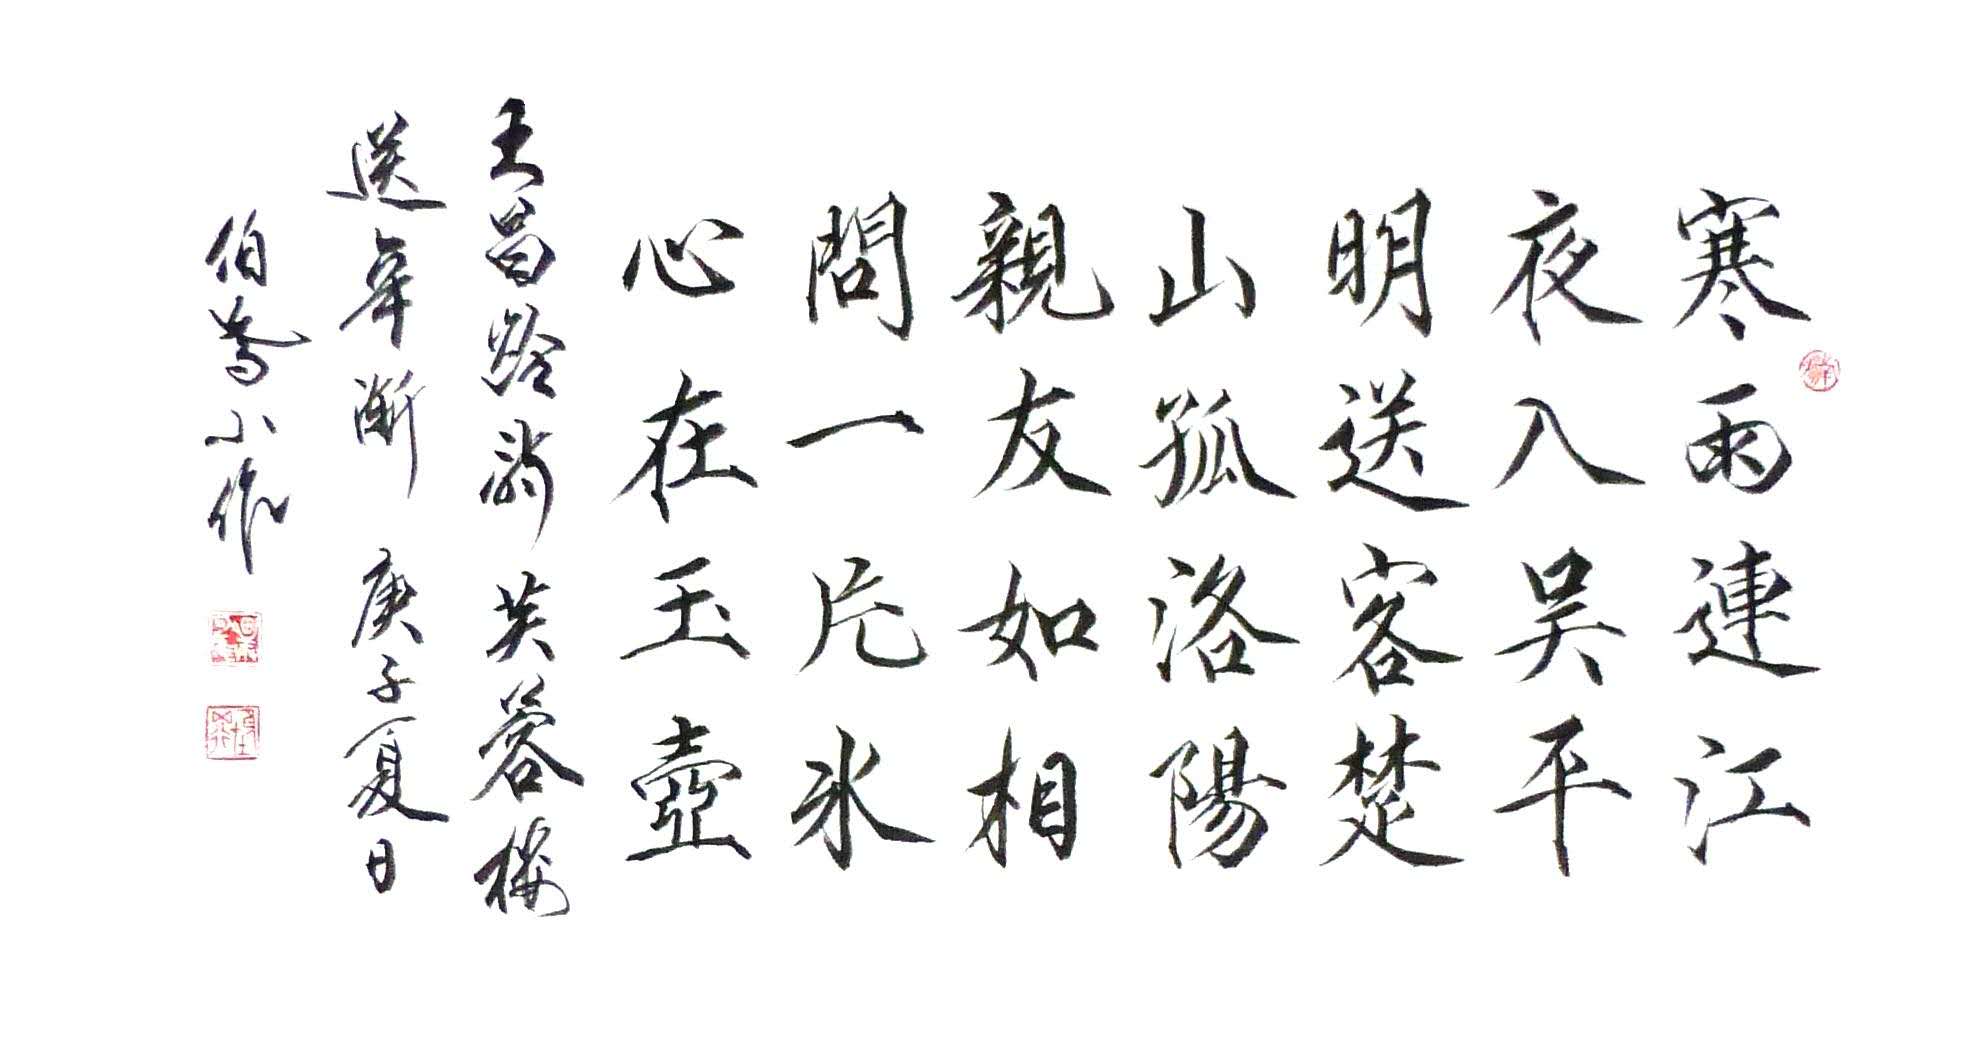 寒雨連江
夜入吳平
明送客楚
山孤洛陽
親友如相
問一片氷
心在玉壺
王昌龄詩芙蓉楼
送辛漸 庚子夏日
伯鸞小作